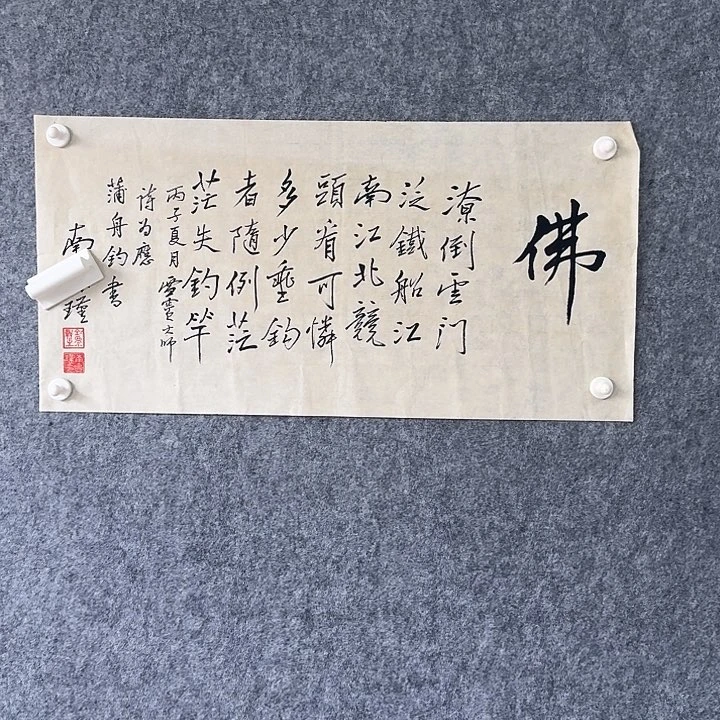 佛
潦倒雲门
泛鐵船江
南江北競
頭看可憐
多少垂鈎
者隨例茫
茫失釣竿
丙子夏月雪竇大师
詩为應
蒲舟钓書
南瑾